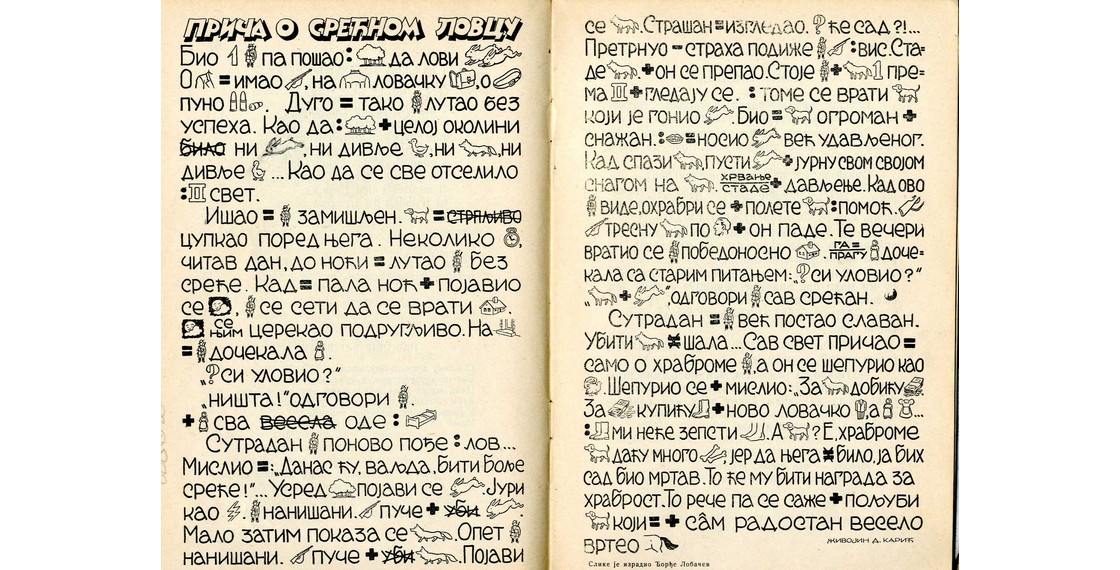 ПРИЧА О СРЕЋНОМ ЛОВЦУ
Био 1 па пошао : да лови
О = имао , на ловачку , о
пуно . Дуго = тако лутао без
успеха. Као да : + целој околини
било ни , ни дивље , ни , ни
дивље ... Као да се све отселило
: II свет.
Ишао = замишљен. = стрпљиво
цупкао поред њега. Неколико ,
читав дан, до ноћи = лутао без
среће. Кад = пала ноћ + појавио
се , се сети да се врати .
се њим церекао подругљиво. На
= дочекала .
„? си уловио?"
„ништа!" одговори .
+ сва весела оде :
Сутрадан поново пође : лов...
Мислио = : „Данас ћу, ваљда, бити боље
среће!"... Усред појави се . Јури
као . нанишани. пуче + уби .
Мало затим показа се . Опет
нанишани. пуче + уби . Појави
се . Страшан = изгледао. ? ће сад ?!...
Претрнуо = страха подиже : вис. Ста=
де + он се препао. Стоје + 1 пре=
ма II + гледају се. : томе се врати
који је гонио . Био = огроман +
снажан. : = носио већ удављеног.
Кад спази , пусти + јурну свом својом
снагом на . хрвање стаде + дављење. Кад ово
виде, охрабри се + полете : помоћ.
тресну по + он паде. Те вечери
вратио се победоносно . га = прагу доче=
кала са старим питањем: „? си уловио?"
„ + ", одговори сав срећан.
Сутрадан = већ постао славан.
Убити ≠ шала... Сав свет причао =
само о храброме , а он се шепурио као
. Шепурио се + мислио: „За добићу
За купићу + ново ловачко , а ...
: ми неће зепсти . А ? Е, храброме
даћу много , јер да њега ≠ било, ја бих
сад био мртав. То ће му бити награда за
храброст. То рече па се саже + пољуби
који = + сâм радостан весело
вртео
ЖИВОЈИН Д. КАРИЋ
Слике је израдио Ђорђе Лобачев